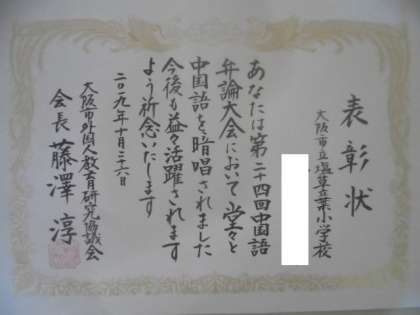 表彰状
大阪市立塩草立葉小学校
あなたは第二十四回中国語
弁論大会において堂々と
中国語を暗唱されました
今後も益々活躍されます
よう祈念いたします
二〇一九年十月二十六日
大阪市外国人教育研究協議会
会長 藤澤 淳